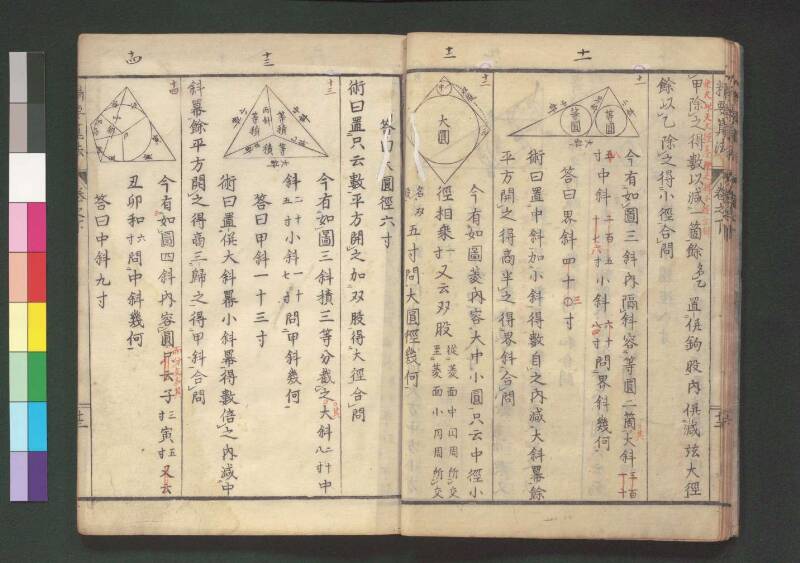 十一
甲除之得數以減一箇餘名乙置倶鉤股內倶減弦大徑
餘以乙除之得小徑合問
十一
等圓
等圓
今有如圖三斜內隔斜容等圓二箇大斜
寸中斜二百五十七寸小斜六十八寸問界斜幾何
答曰界斜四十〇寸
術曰置中斜加小斜得數自之內減大斜冪餘
平方開之得高半之得界斜合問
十二
十二
大圓
今有如圖菱內容大中小圓只云中徑小
徑相乘寸一又云双股從菱面中円周所交至菱面小円周所交
名双五寸問大圓徑幾何
答曰大圓徑六寸
術曰置只云數平方開之加双股得大徑合問
十三
十三
等積
等積
等積
今有如圖三斜積三等分截之大斜二十八寸中
斜二十五寸小斜一十七寸問甲斜幾何
答曰甲斜一十三寸
術曰置倶大斜冪小斜冪得數倍之內減中
斜冪餘平方開之得高三歸之得甲斜合問
十四
十四
今有如圖四斜內容圓只云子三寸寅五寸又云
丑卯和六寸問中斜幾何
答曰中斜九寸